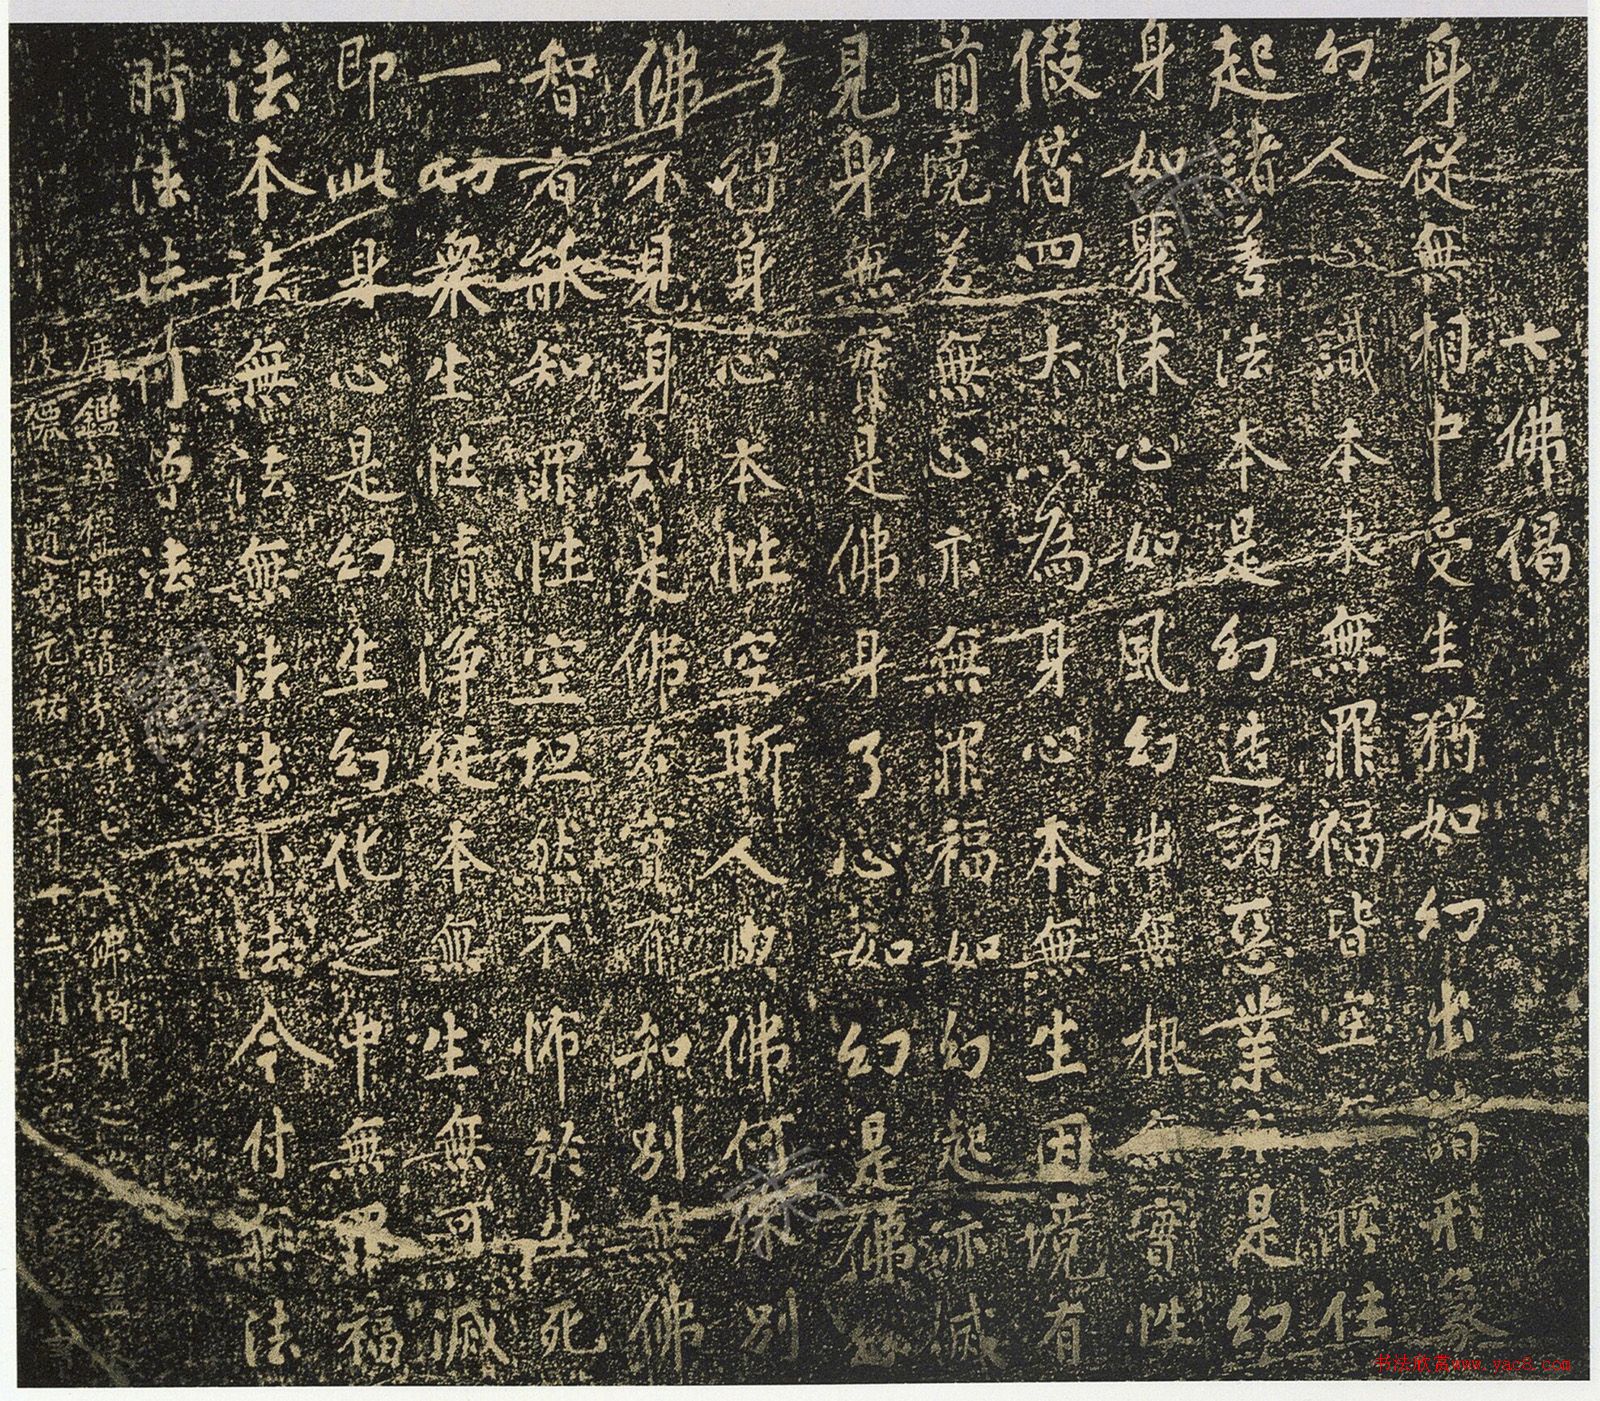 七佛偈
身從無相中受生猶如幻出諸形象
幻人心識本來無罪福皆空無所住
起諸善法本是幻造諸惡業亦是幻
身如聚沫心如風幻出無根無實性
假借四大以為身心本無生因境有
前境若無心亦無罪福如幻起亦滅
見身無實是佛身了心如幻是佛幻
了得身心本性空斯人與佛何殊別
佛不見身知是佛若實有知別無佛
智者能知罪性空坦然不怖於生死
一切眾生性清淨從本無生無可滅
即此身心是幻生幻化之中無罪福
法本法無法無法法亦法今付無法
時法法何曾法
鑑 祖師 七佛偈刻之
元祐 年十二月大
书法欣赏www.yac8.com